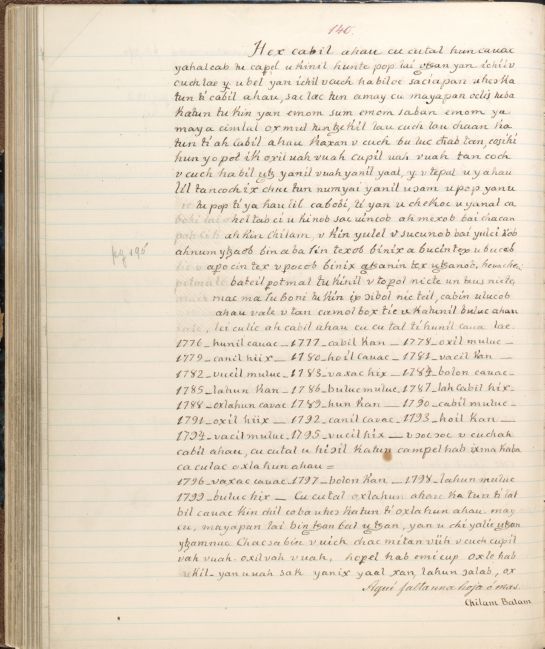 140.
Hex cabil ahau cu cutal hun cauac
yahalcab tu capel u kinil hunte pop lai utsan yan ichil v
cuch lae y. ubel yan ichil vcuch habiloc saciapan uhes ka
tun ti cabil ahau, sac lac tun amay cu mayapan oclis tuba
katun tu kin yan emom sum emom saban emom ya
maya cimlal ox mul tun tzekil lau cuch lau chaan ka
tun ti ah cabil ahau kaxan v cuch bu luc chab tan, cojchi
hun yo pot ik oxil uah vuah cupil uah vuah tan coch
v cuch habil uts yanil vuah yanil yaal, y. v tepal u y ahau
lil tancoch ix chuu tun numyai yanil usam u pop yanu
tu pop ti ya hau lil cabobi, ti yan u chekoc u yanal ca
heltab ci u kinob sac uincob ah mexob bai chacan
ah kin Chilam, v kin yulel v sucunob bai yulci kob
ahnum ytzaob bin aba lin texob binix a bucintex u bucob
apocintex v pocob binix atsanin tex utsanob,
bateil potmal tu kinil v topol nicte un tuus nicte,
mac ma lu boni tu kin ix sibol nicteil, cabin ulucob
ahau vale v tan camol box tic u katunil buluc ahau
lei culic ah cabil ahau cu cu tal ti hunil caua lae.
1776_ hunil cauac _ 1777_ cabil kan _ 1778_ oxil muluc _
1779_ canil hiix _ 1780_ hoil cauac _ 1781_ vacil kan _
1782_ vucil muluc _ 1783_ vaxac hix _ 1784_ bolon cauac _
1785_ lahun kan _ 1786_ buluc muluc_ 1787_ lah Cabil hix_
1788_ oxlahun cavac 1789_ hun kan _ 1790_ cabil muluc _
1791_ oxil hiix _ 1792_ canil cavac _ 1793_ hoil kan _
1794_ vacil muluc_ 1795_ vucil hix _ v ɔocɔoc v cuchah
cabil ahau, cu cutal u hiɔil katun campel hab ixma kaba
ca culac oxlahun ahau =
1796_ vaxac cauac_ 1797_ bolon kan _ 1798_ lahun muluc
1799_ buluc hix _ Cu cutal oxlahun ahau ka tun ti lat
bil cauac kin chil coba u hes katun ti oxlahun ahau may
cu, mayapan lai bin tsan bal u tsan, yan u chi yalic utsan
ytzamnae Chac sabin v vich chac mitan viih v cuch cupil
vah vuah. oxil vah vuah, hopel hab emi cup oxlo hab
ukil_ yan uuah sak yanix yaal xan, lahun ɔalab, ox
Aqui falta una hoja ó mas.
Chilam Balam